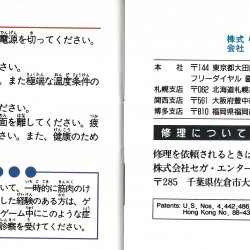 電源を切ってください。
。
。また極端な温度条件の
。
離してください。疲
面に。また、健康のため
い。
いて、一時的に筋肉のけ
した経験のある方は、ゲ
ゲーム中にこのような症
診察を受けてください。
株式
会社
本　社 〒144 東京都大田
フリーダイヤル
札幌支店 〒062 北海道札幌
関西支店 〒561 大阪府豊中
博多支店 〒810 福岡県福岡
修理について
修理を依頼されるときは
株式会社セガ・エンター
〒285 千葉県佐倉市大
Patents: U.S. Nos. 4,442,486
Hong Kong No. 88-43